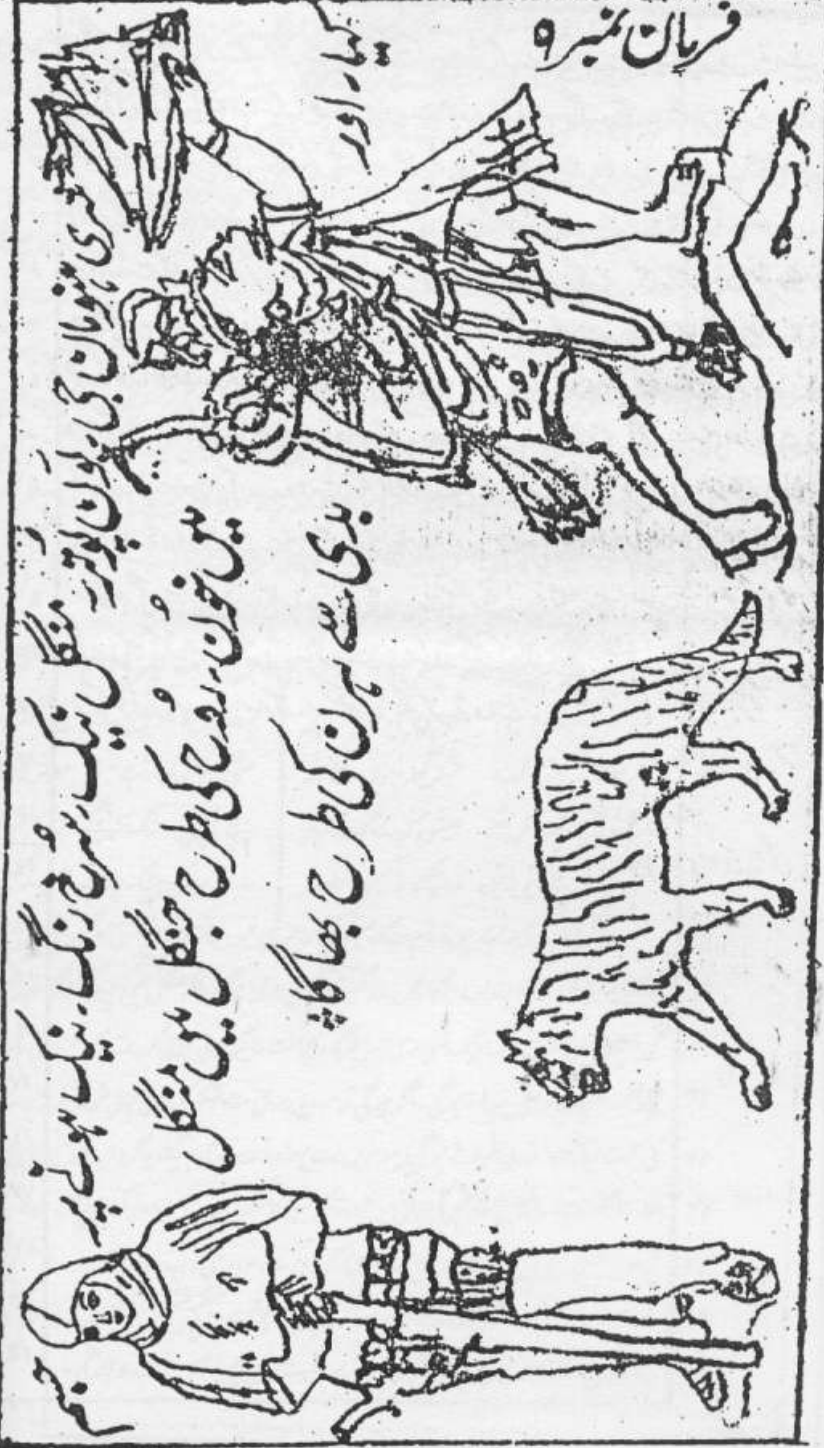 فرمان نمبر ۹
شری ہنومان جی پون پوتر منگل نیک، سرخ رنگ، نیک ہونے پر
میں خون، روح کی طرح جنگل میں منگل
بدی سے ہرن کی طرح بھاگا